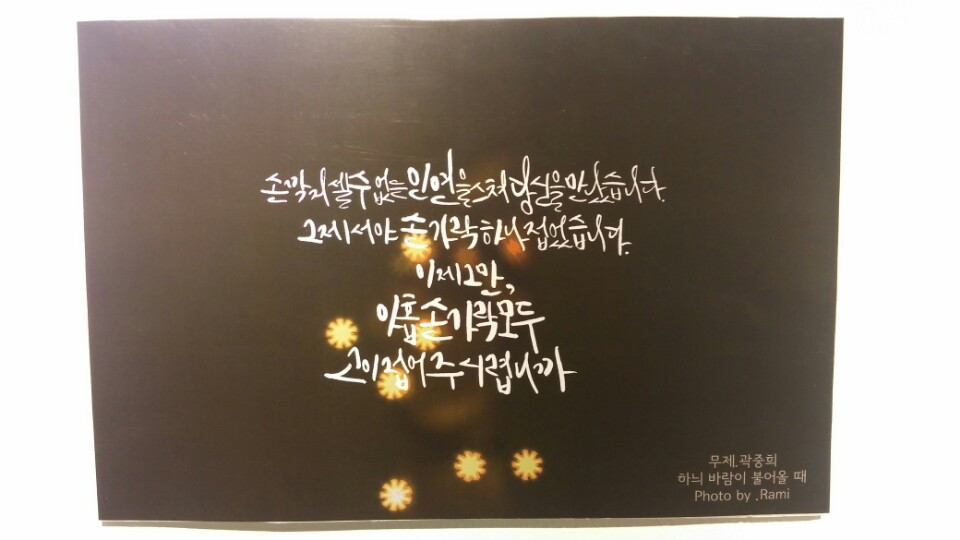 손꼽아 셀 수 없는 인연을 스쳐 당신을 만났습니다.
그제서야 손가락 하나 접었습니다.
이제 그만,
아홉 손가락 모두
고이 접어 주시렵니까
무제.곽중희
하늬 바람이 불어올 때
Photo by .Rami